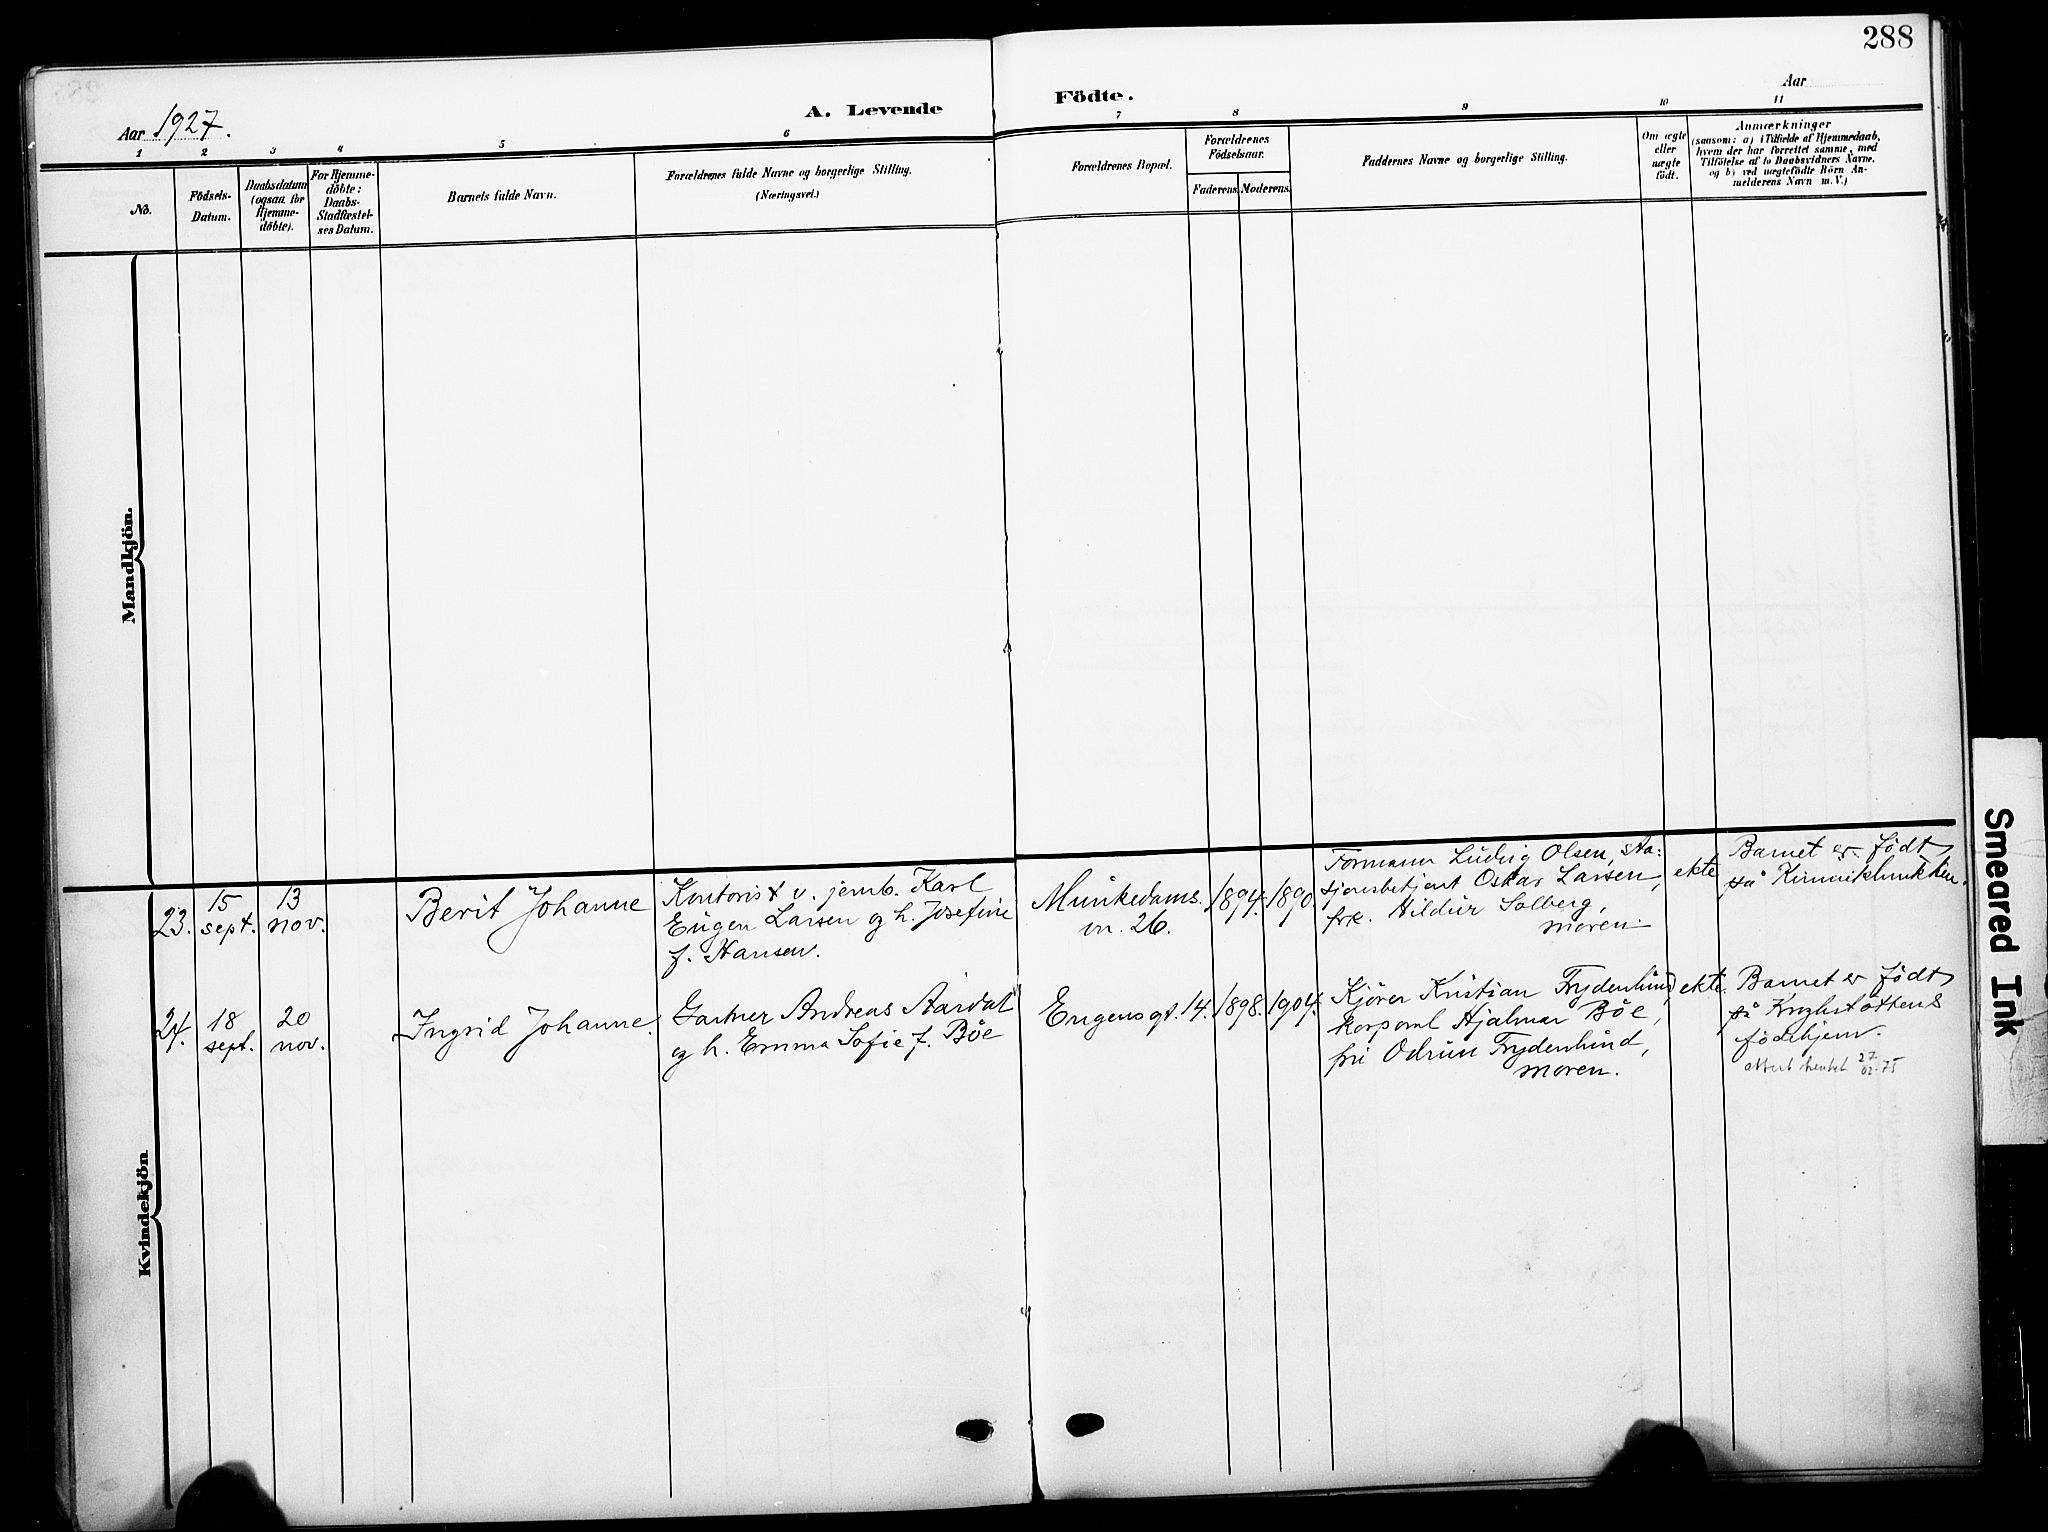 288
Aar 1927.
A. Levende
Födte.
Aar
1 2 3 4 5 6 7 8 9 10 11
No.
Födsels-
Datum.
Daabsdatum
(ogsaa for
Hjemme-
döbte).
For Hjemme-
döbte:
Daabs-
Stadfæstel-
ses Datum.
Barnets fulde Navn.
Forældrenes fulde Navne og borgerlige Stilling.
(Næringsvei.)
Forældrenes Bopæl.
Forældrenes
Födselsaar.
Faderens. Moderens.
Faddernes Navne og borgerlige Stilling.
Om ægte
eller
uægte
födt.
Anmærkninger
(saasom: a) i Tilfælde af Hjemmedaab,
hvem der har forrettet samme, med
Tilföielse af to Daabsvidners Navne,
og b) ved uægtefödte Börn An-
melderens Navn m.V.)
Mandkjön.
Kvindekjön
23.
15
sept.
13
nov.
Berit Johanne
Kontorist v. jernb. Karl
Eugen Larsen og h. Josefine
f. Hansen.
Munkedams.
vn. 26.
1894.
1890
Formann Ludvig Olsen, sta:
sjonsbetjent Oskar Larsen,
frk. Hildur Solberg,
moren.
ekte
Barnet er født
på Kvinneklinikken.
24.
18
sept.
20
nov.
Ingrid Johanne.
Gartner Andreas Aardal
og h. Emma Sofie f. Böe
Eugensgt. 14.
1898.
1904.
Kjörer Kristian Frydenlund,
korporal Hjalmar Böe,
fru Odrun Frydenlund,
moren.
ekte.
Barnet er født
på Krohnstöttens
födehjem.
attest hentet 27/02-75
Smeared Ink